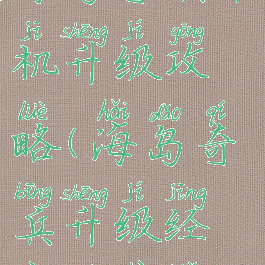 jī shēng jí gōng
机升级攻
lüè hǎi dǎo qí
略(海岛奇
bīng shēng jí jīng
兵升级经